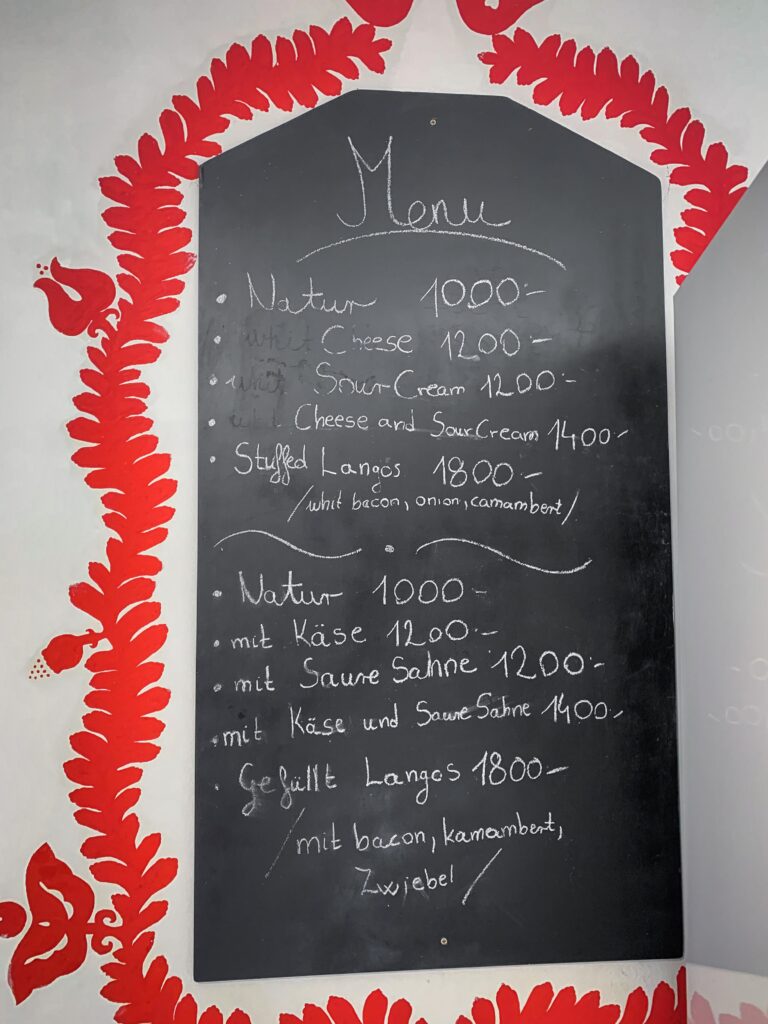 Menu
• Natur 1000.-
• whit Cheese 1200.-
• whit Sour Cream 1200.-
• whit Cheese and Sour Cream 1400.-
• Stuffed Langos 1800.-
/whit bacon, onion, camambert/
• Natur 1000.-
• mit Käse 1200.-
• mit Saure Sahne 1200.-
• mit Käse und Saure Sahne 1400.-
• Gefüllt Langos 1800.-
/mit bacon, kamambert,
Zwiebel/